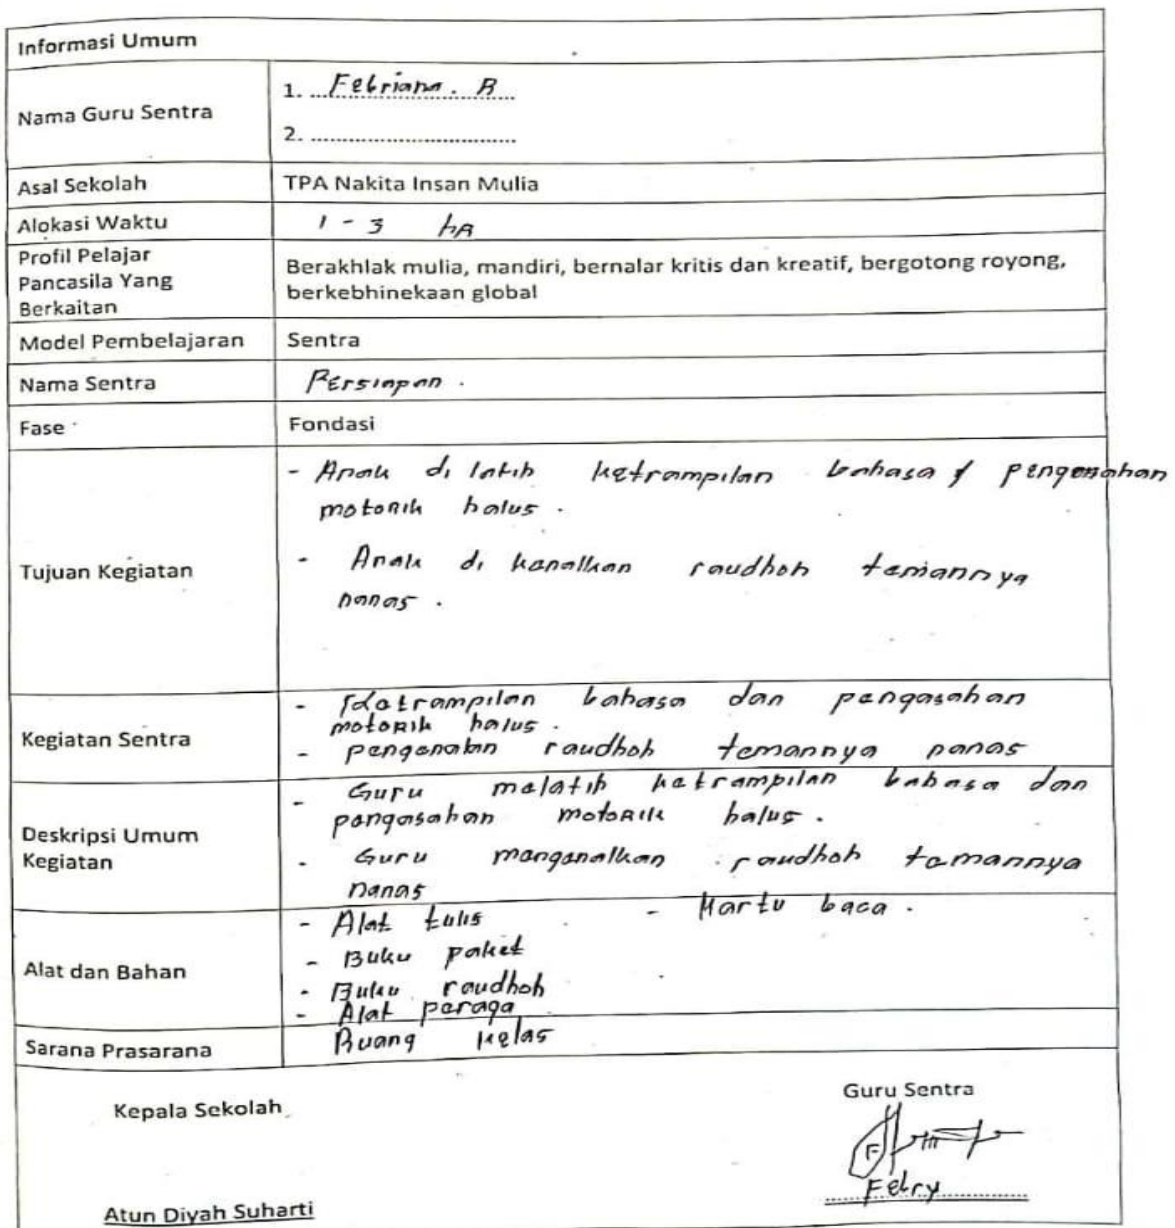 Informasi Umum
Nama Guru Sentra
1. Febriana. R
2.
Asal Sekolah
TPA Nakita Insan Mulia
Alokasi Waktu
1 - 3 hr
Profil Pelajar
Pancasila Yang
Berkaitan
Berakhlak mulia, mandiri, bernalar kritis dan kreatif, bergotong royong,
berkebhinekaan global
Model Pembelajaran
Sentra
Nama Sentra
Persiapan.
Fase
Fondasi
Tujuan Kegiatan
- Anak di latih ketrampilan bahasa & pengasahan
motorik halus.
- Anak di kenalkan raudhoh temannya
nanas.
Kegiatan Sentra
- Ketrampilan bahasa dan pengasahan
motorik halus.
- pengenalan raudhoh temannya nanas
Deskripsi Umum
Kegiatan
- Guru melatih ketrampilan bahasa dan
pengasahan motorik halus.
- Guru mengenalkan raudhoh temannya
nanas
Alat dan Bahan
- Alat tulis - Kartu baca.
- Buku paket
- Buku raudhoh
- Alat peraga
Sarana Prasarana
Ruang kelas
Kepala Sekolah
Guru Sentra
Febry
Atun Diyah Suharti